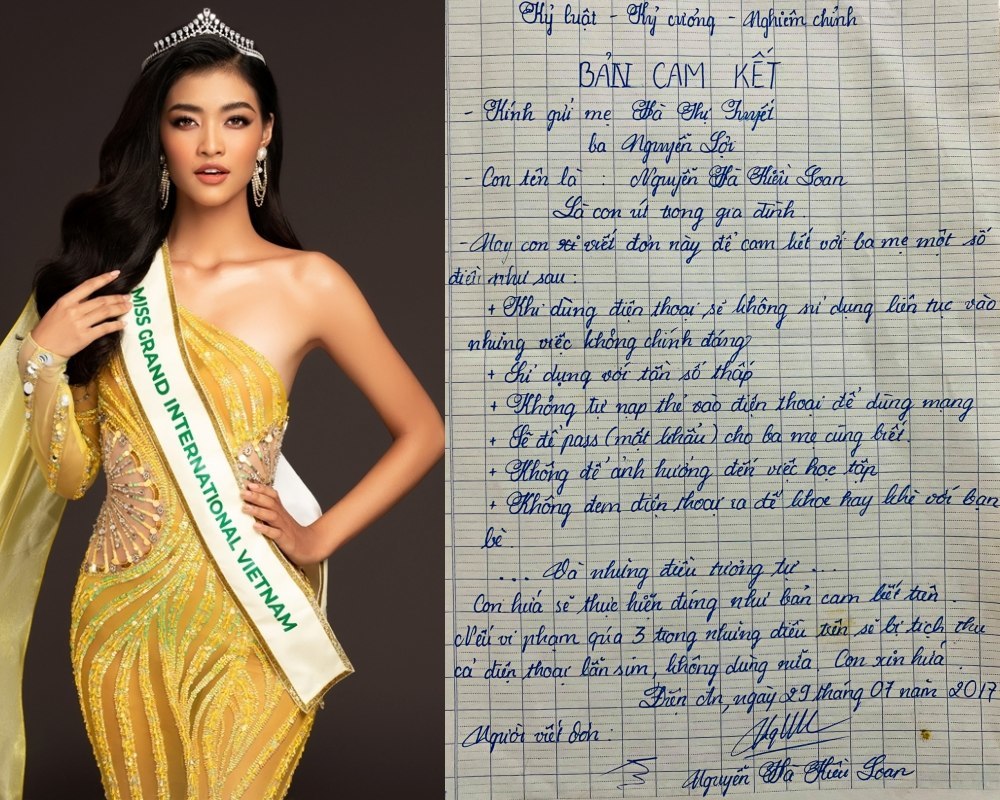 MISS GRAND INTERNATIONAL VIETNAM
Kỷ luật - Kỷ cương - Nghiêm chỉnh
BẢN CAM KẾT
- Kính gửi mẹ Hà Thị Tuyết
ba Nguyễn Lợi
- Con tên là : Nguyễn Hà Kiều Loan
Là con út trong gia đình.
- Nay con viết đơn này để cam kết với ba mẹ một số
điều như sau :
+ Khi dùng điện thoại sẽ không sử dụng liên tục vào
những việc không chính đáng
+ Sử dụng với tần số thấp
+ Không tự nạp thẻ vào điện thoại để dùng mạng
+ Sẽ để pass (mật khẩu) cho ba mẹ cùng biết.
+ Không để ảnh hưởng đến việc học tập
+ Không đem điện thoại ra để khoe hay khè với bạn
bè.
... Và những điều tương tự ...
Con hứa sẽ thực hiện đúng như bản cam kết trên.
Nếu vi phạm qúa 3 trong những điều trên sẽ bị tịch thu
cả điện thoại lẫn sim, không dùng nữa. Con xin hứa.
Điện An, ngày 29 tháng 07 năm 2017
Người viết đơn :
Nguyễn Hà Kiều Loan